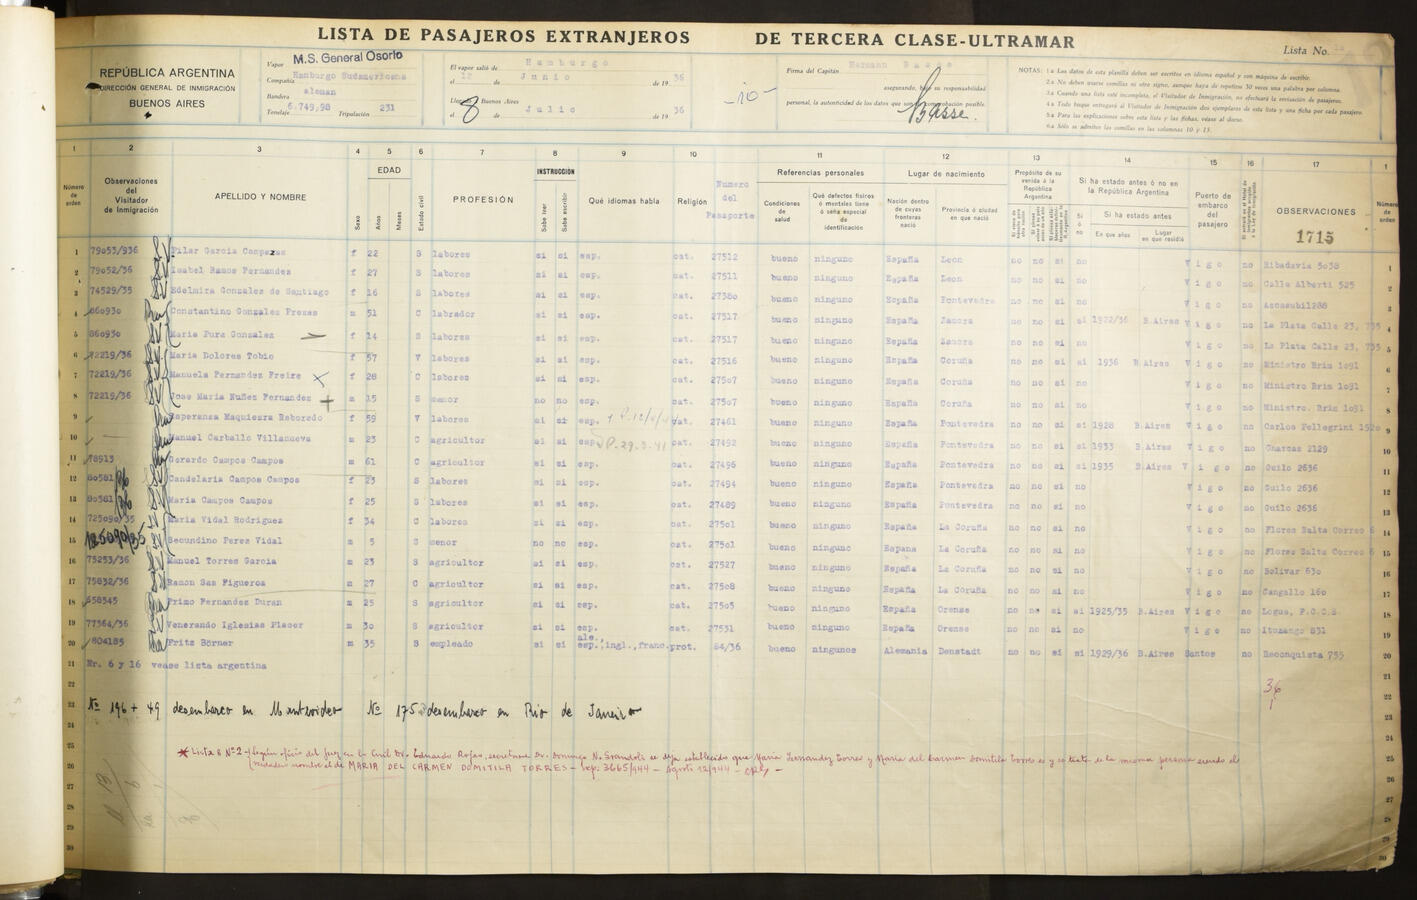 LISTA DE PASAJEROS EXTRANJEROS DE TERCERA CLASE-ULTRAMAR
Lista No.
REPÚBLICA ARGENTINA
DIRECCIÓN GENERAL DE INMIGRACIÓN
BUENOS AIRES
Vapor M.S. General Osorio
Compañía Hamburgo Sudamericana
Bandera aleman
Tonelaje 6.749,98 Tripulación 231
El vapor salió de Hamburgo
el 12 de Junio de 1936
Llegó a Buenos Aires
el 8 de Julio de 1936
-10-
Firma del Capitán Hermann
asegurando, bajo su responsabilidad
personal, la autenticidad de los datos que son de comprobación posible.
NOTAS: 1a Los datos de esta planilla deben ser escritos en idioma español y con máquina de escribir.
2a No deben usarse comillas ni otro signo, aunque haya de repetirse 30 veces una palabra por columna.
3a Cuando una lista esté incompleta, el Visitador de Inmigración, no efectuará la revisación de pasajeros.
4a Todo buque entregará al Visitador de Inmigración dos ejemplares de esta lista y una ficha por cada pasajero.
5a Para las explicaciones sobre esta lista y las fichas, véase al dorso.
6a Sólo se admiten las comillas en las columnas 10 y 15.
1 2 3 4 5 6 7 8 9 10 11 12 13 14 15 16 17 1
Número de orden
Observaciones del Visitador de Inmigración
APELLIDO Y NOMBRE
Sexo
EDAD
Años
Meses
Estado civil
PROFESIÓN
INSTRUCCIÓN
Sabe leer
Sabe escribir
Qué idiomas habla
Religión
Numero del Pasaporte
Referencias personales
Condiciones de salud
Qué defectos físicos ó mentales tiene ó seña especial de identificación
Lugar de nacimiento
Nación dentro de cuyas fronteras nació
Provincia ó ciudad en que nació
Propósito de su venida á la República Argentina
Si ha estado antes ó no en la República Argentina
Si ó no
Si ha estado antes
En que años
Lugar en que residió
Puerto de embarco del pasajero
OBSERVACIONES
1715
Número de orden
1 79053/936 Pilar Garcia f 22 S labores si si esp. cat. 27512 bueno ninguno España Leon no no si no Vigo no Ribadavia 5038 1
2 79052/36 Isabel Ramos Fernandez f 27 S labores si si esp. cat. 27511 bueno ninguno España Leon no no si no Vigo no Calle Alberti 525 2
3 74529/35 Edelmira Gonzalez de Santiago f 16 S labores si si esp. cat. 27380 bueno ninguno España Pontevedra no no si no Vigo no Ascasubi 288 3
4 860930 Constantino Gonzalez Prezas m 51 C labrador si si esp. cat. 27517 bueno ninguno España Zamora no no si si 1922/36 B.Aires Vigo no La Plata Calle 23, 735 4
5 860930 Maria Pura Gonzalez f 14 S labores si si esp. cat. 27517 bueno ninguno España Zamora no no si no Vigo no La Plata Calle 23, 735 5
6 72219/36 Maria Dolores Tobio f 57 V labores si si esp. cat. 27516 bueno ninguno España Coruña no no si si 1936 B.Aires Vigo no Ministro Brin 1091 6
7 72219/36 Manuela Fernandez Freire f 28 C labores si si esp. cat. 27507 bueno ninguno España Coruña no no si no Vigo no Ministro Brin 1091 7
8 72219/36 Jose Maria Nuñez Fernandez m 15 S menor no no esp. cat. 27507 bueno ninguno España Coruña no no si no Vigo no Ministro. Brin 1091 8
9 Esperanza Maquieira Reboredo f 59 V labores si si esp. cat. 27461 bueno ninguno España Pontevedra no no si si 1928 B.Aires Vigo no Carlos Pellegrini 1520 9
10 Manuel Carballo Villanueva m 23 C agricultor si si esp. P-29-3-41 cat. 27492 bueno ninguno España Pontevedra no no si si 1933 B.Aires Vigo no Charcas 2129 10
11 78913 Gerardo Campos Campos m 61 C agricultor si si esp. cat. 27496 bueno ninguno España Pontevedra no no si si 1935 B.Aires Vigo no Quilo 2636 11
12 80581/36 Candelaria Campos Campos f 23 S labores si si esp. cat. 27494 bueno ninguno España Pontevedra no no si no Vigo no Quilo 2636 12
13 80581/36 Maria Campos Campos f 25 S labores si si esp. cat. 27489 bueno ninguno España Pontevedra no no si no Vigo no Quilo 2636 13
14 725090/35 Maria Vidal Rodriguez f 34 C labores si si esp. cat. 27501 bueno ninguno España La Coruña no no si no Vigo no Flores Salta Correo 6 14
15 Secundino Perez Vidal m 5 S menor no no esp. cat. 27501 bueno ninguno España La Coruña no no si no Vigo no Flores Salta Correo 6 15
16 75253/36 Manuel Torres Garcia m 23 S agricultor si si esp. cat. 27527 bueno ninguno España La Coruña no no si no Vigo no Bolivar 630 16
17 75832/36 Ramon Sas Figueroa m 27 C agricultor si si esp. cat. 27508 bueno ninguno España La Coruña no no si no Vigo no Cangallo 160 17
18 658545 Primo Fernandez Duran m 25 S agricultor si si esp. cat. 27505 bueno ninguno España Orense no no si si 1925/35 B.Aires Vigo no Logue, F.C.C.B. 18
19 77364/36 Venerando Iglesias Placer m 30 S agricultor si si esp. cat. 27531 bueno ninguno España Orense no no si no Vigo no Ituzango 831 19
20 804185 Fritz Börner m 35 S empleado si si ale., esp., ingl., franc. prot. 84/36 bueno ningunos Alemania Denstadt no no si si 1929/36 B.Aires Santos no Reconquista 755 20
21 Nr. 6 y 16 vease lista argentina 21
22 22
36
23 No 196 + 49 desembarco en Montevideo No 175 desembarco en Rio de Janeiro 23
24 24
25 * Lista 8 No 2 - Según oficio del Juez en lo Civil Dr. Eduardo Rojas, secretario Dr. Domingo N. Grandoli se deja establecido que Maria Fernandez Torres y Maria del Carmen Domitila Torres es y se trata de la misma persona siendo el 25
26 verdadero nombre el de MARIA DEL CARMEN DOMITILA TORRES - Exp. 3665/944 - Agosto 12/944 - 26
27 27
28 28
29 29
30 30